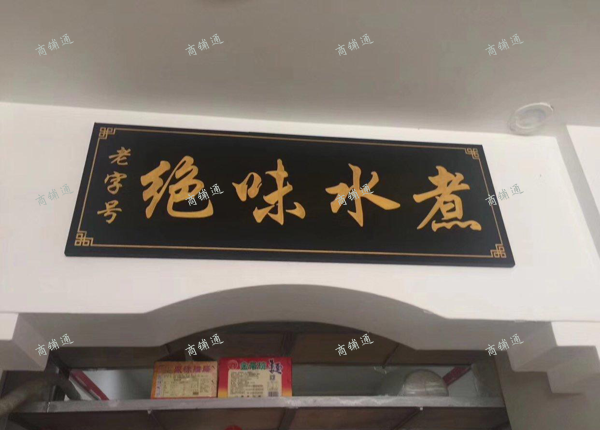 老字号
绝味水煮
商铺通
商铺通
商铺通
商铺通
商铺通
商铺通
商铺通
商铺通
商铺通
商铺通
商铺通
商铺通